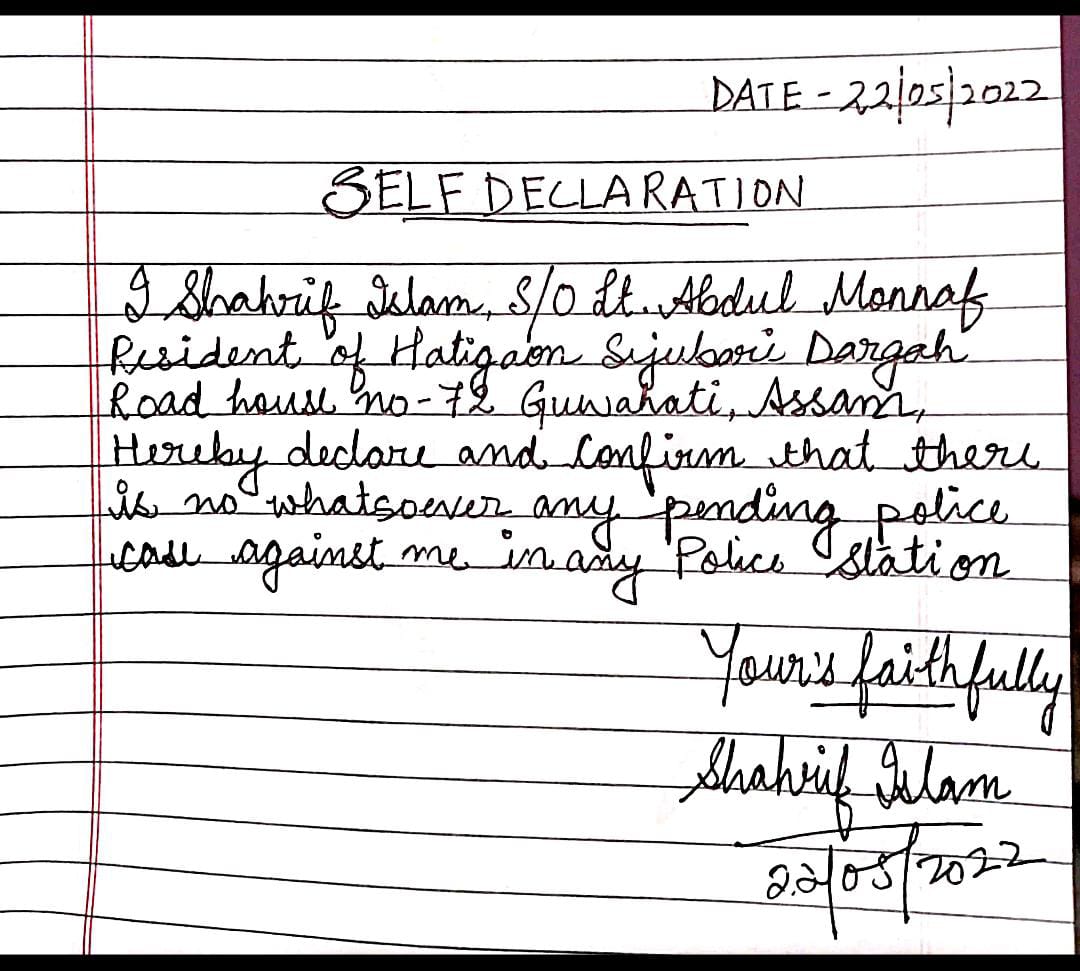 DATE - 22/05/2022
SELF DECLARATION
I Shahrif Islam, S/O Lt. Abdul Monnaf
Resident of Hatigaon Sijubari Dargah
Road house no-72 Guwahati, Assam,
Hereby declare and Confirm that there
is no whatsoever any pending police
case against me in any Police Station
Your's faithfully
Shahrif Islam
22/05/2022